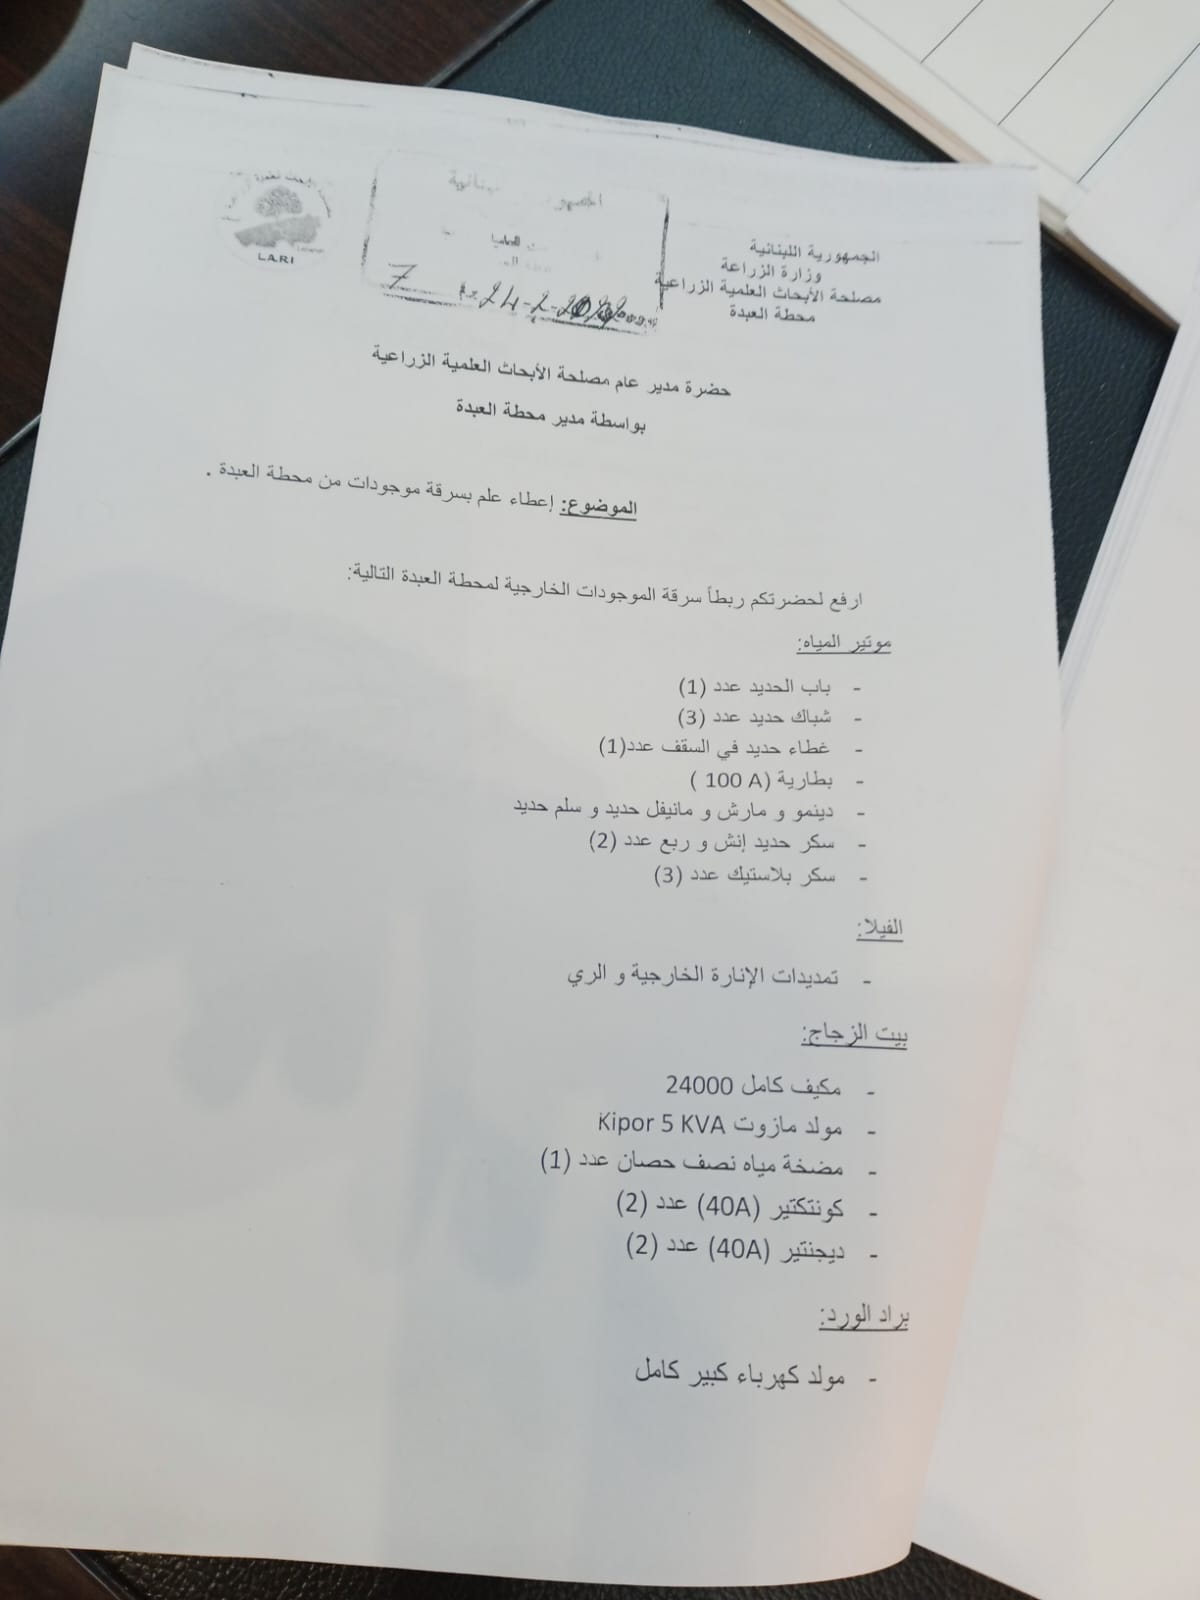 الجمهورية اللبنانية
وزارة الزراعة
مصلحة الأبحاث العلمية الزراعية
محطة العبدة
LARI
7
24-2-20
حضرة مدير عام مصلحة الأبحاث العلمية الزراعية
بواسطة مدير محطة العبدة
الموضوع: إعطاء علم بسرقة موجودات من محطة العبدة .
ارفع لحضرتكم ربطاً سرقة الموجودات الخارجية لمحطة العبدة التالية:
موتير المياه:
- باب الحديد عدد (1)
- شباك حديد عدد (3)
- غطاء حديد في السقف عدد(1)
- بطارية (100 A )
- دينمو و مارش و مانيفل حديد و سلم حديد
- سكر حديد إنش و ربع عدد (2)
- سكر بلاستيك عدد (3)
الفيلا:
- تمديدات الإنارة الخارجية و الري
بيت الزجاج:
- مكيف كامل 24000
- مولد مازوت Kipor 5 KVA
- مضخة مياه نصف حصان عدد (1)
- كونتكتير (40A) عدد (2)
- ديجنتير (40A) عدد (2)
براد الورد:
- مولد كهرباء كبير كامل